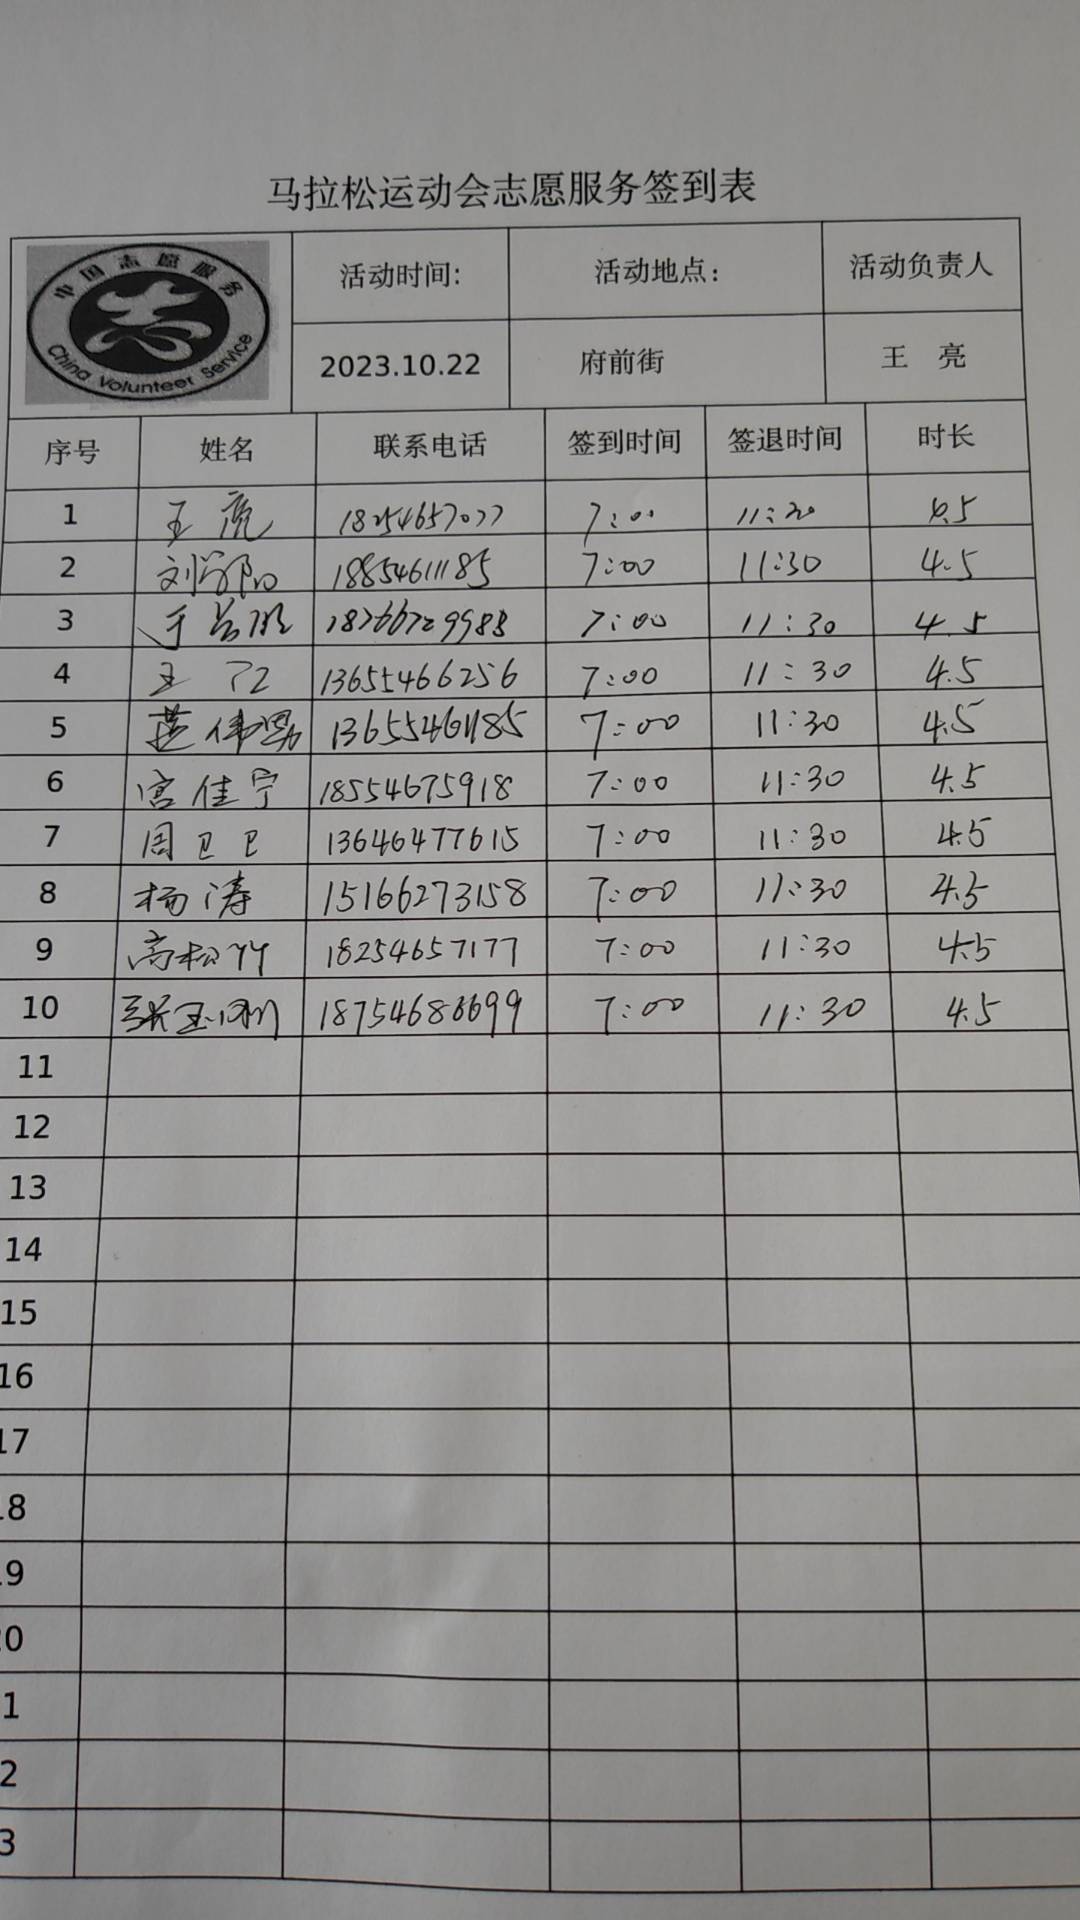 马拉松运动会志愿服务签到表
中国志愿服务
China Volunteer Service
活动时间: 活动地点: 活动负责人
2023.10.22 府前街 王 亮
序号 姓名 联系电话 签到时间 签退时间 时长
1 王亮 18254657077 7:00 11:30 4.5
2 刘学阳 18854611185 7:00 11:30 4.5
3 于 18766729988 7:00 11:30 4.5
4 王 13655466256 7:00 11:30 4.5
5 伟男 7:00 11:30 4.5
6 宫佳宁 18554675918 7:00 11:30 4.5
7 周卫卫 13646477615 7:00 11:30 4.5
8 杨涛 15166273158 7:00 11:30 4.5
9 高松竹 18254657177 7:00 11:30 4.5
10 张玉刚 18754686699 7:00 11:30 4.5
11
12
13
14
15
16
17
18
19
20
1
2
3